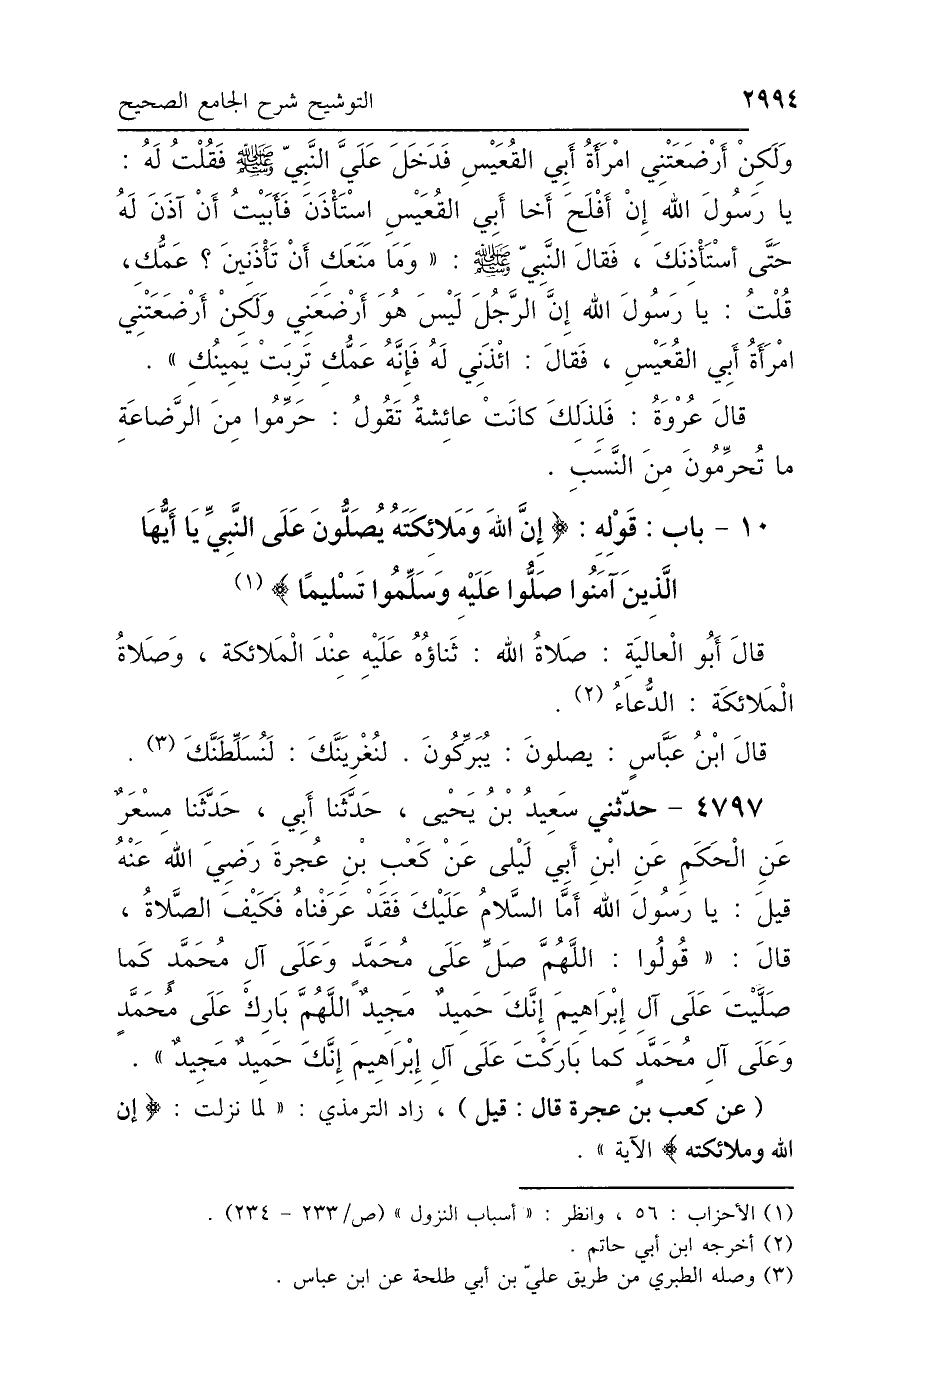 ٢٩٩٤ التوشيح شرح الجامع الصحيح
وَلَكِنْ أَرْضَعَتْنِي امْرَأَةُ أَبِي القُعَيْسِ فَدَخَلَ عَلَيَّ النَّبِيّ ﷺ فَقُلْتُ لَهُ :
يا رَسُولَ الله إِنْ أَفْلَحَ أَخا أَبِي القُعَيْسِ اسْتَأْذَنَ فَأَبَيْتُ أَنْ آذَنَ لَهُ
حَتَّى أسْتَأْذِنَكَ ، فَقالَ النَّبِيّ ﷺ : « وَمَا مَنَعَكِ أَنْ تَأْذَنِينَ ؟ عَمُّكِ،
قُلْتُ : يا رَسُولَ الله إِنَّ الرَّجُلَ لَيْسَ هُوَ أَرْضَعَنِي ولَكِنْ أَرْضَعَتْنِي
امْرَأَةُ أَبِي القُعَيْسِ ، فَقالَ : ائْذَنِي لَهُ فَإِنَّهُ عَمُّكِ تَرِبَتْ يَمِينُكِ » .
قالَ عُرْوَةُ : فَلِذَلِكَ كانَتْ عائشةُ تَقُولُ : حَرِّمُوا مِنَ الرَّضاعَةِ
ما تُحرِّمُونَ مِنَ النَّسَبِ .
١٠ - باب : قَوْلِهِ : ﴿ إِنَّ اللهَ وَمَلائكَتَهُ يُصَلُّونَ عَلَى النَّبِيِّ يَا أَيُّهَا
الَّذِينَ آمَنُوا صَلُّوا عَلَيْهِ وَسَلِّمُوا تَسْلِيمًا ﴾ (١)
قالَ أَبُو الْعالِيَةِ : صَلاةُ الله : ثَناؤُهُ عَلَيْهِ عِنْدَ الْمَلائكةِ ، وصَلاةُ
الْمَلائكَةِ : الدُّعاءُ (٢) .
قالَ ابْنُ عَبَّاسٍ : يصلونَ : يُبَرِّكُونَ . لنُغْرِيَنَّكَ : لَنُسَلِّطَنَّكَ (٣) .
٤٧٩٧ - حدّثني سَعِيدُ بْنُ يَحْيى ، حَدَّثَنا أَبِي ، حَدَّثَنا مِسْعَرٌ
عَنِ الْحَكَمِ عَنِ ابْنِ أَبِي لَيْلى عَنْ كَعْبِ بْنِ عُجرةَ رَضِيَ الله عَنْهُ
قيلَ : يا رَسُولَ الله أمَّا السَّلامُ عَلَيْكَ فَقَدْ عَرَفْناهُ فَكَيْفَ الصَّلاةُ ،
قالَ : « قُولُوا : اللَّهُمَّ صَلِّ عَلَى مُحَمَّدٍ وَعَلَى آلِ مُحَمَّدٍ كَما
صَلَّيْتَ عَلَى آلِ إِبْرَاهِيمَ إِنَّكَ حَمِيدٌ مَجِيدٌ اللَّهُمَّ بَارِكْ عَلَى مُحَمَّدٍ
وَعَلَى آلِ مُحَمَّدٍ كما بَارَكْتَ عَلَى آلِ إِبْرَاهِيمَ إِنَّكَ حَمِيدٌ مَجِيدٌ » .
( عن كعب بن عجرة قال : قيل ) ، زاد الترمذي : « لما نزلت : ﴿ إن
الله وملائكته ﴾ الآية » .
(١) الأحزاب : ٥٦ ، وانظر : « أسباب النزول » (ص/ ٢٣٣ - ٢٣٤) .
(٢) أخرجه ابن أبي حاتم .
(٣) وصله الطبري من طريق عليّ بن أبي طلحة عن ابن عباس .